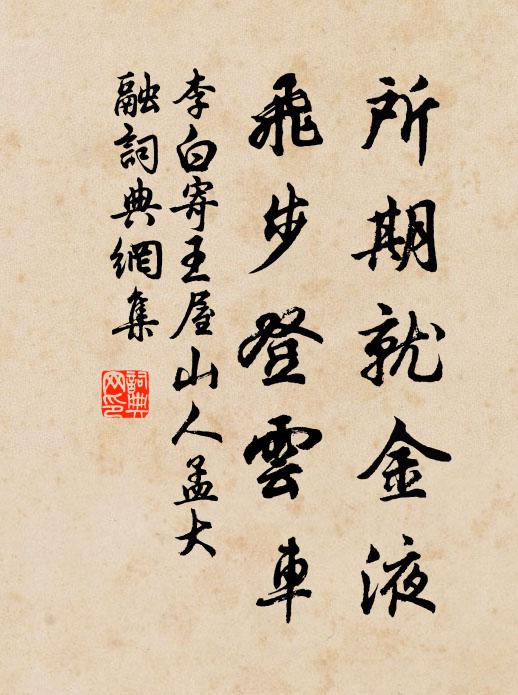 所期就金液
飛步登雲車
李白寄王屋山人孟大
融詞典網集
詞典
网印